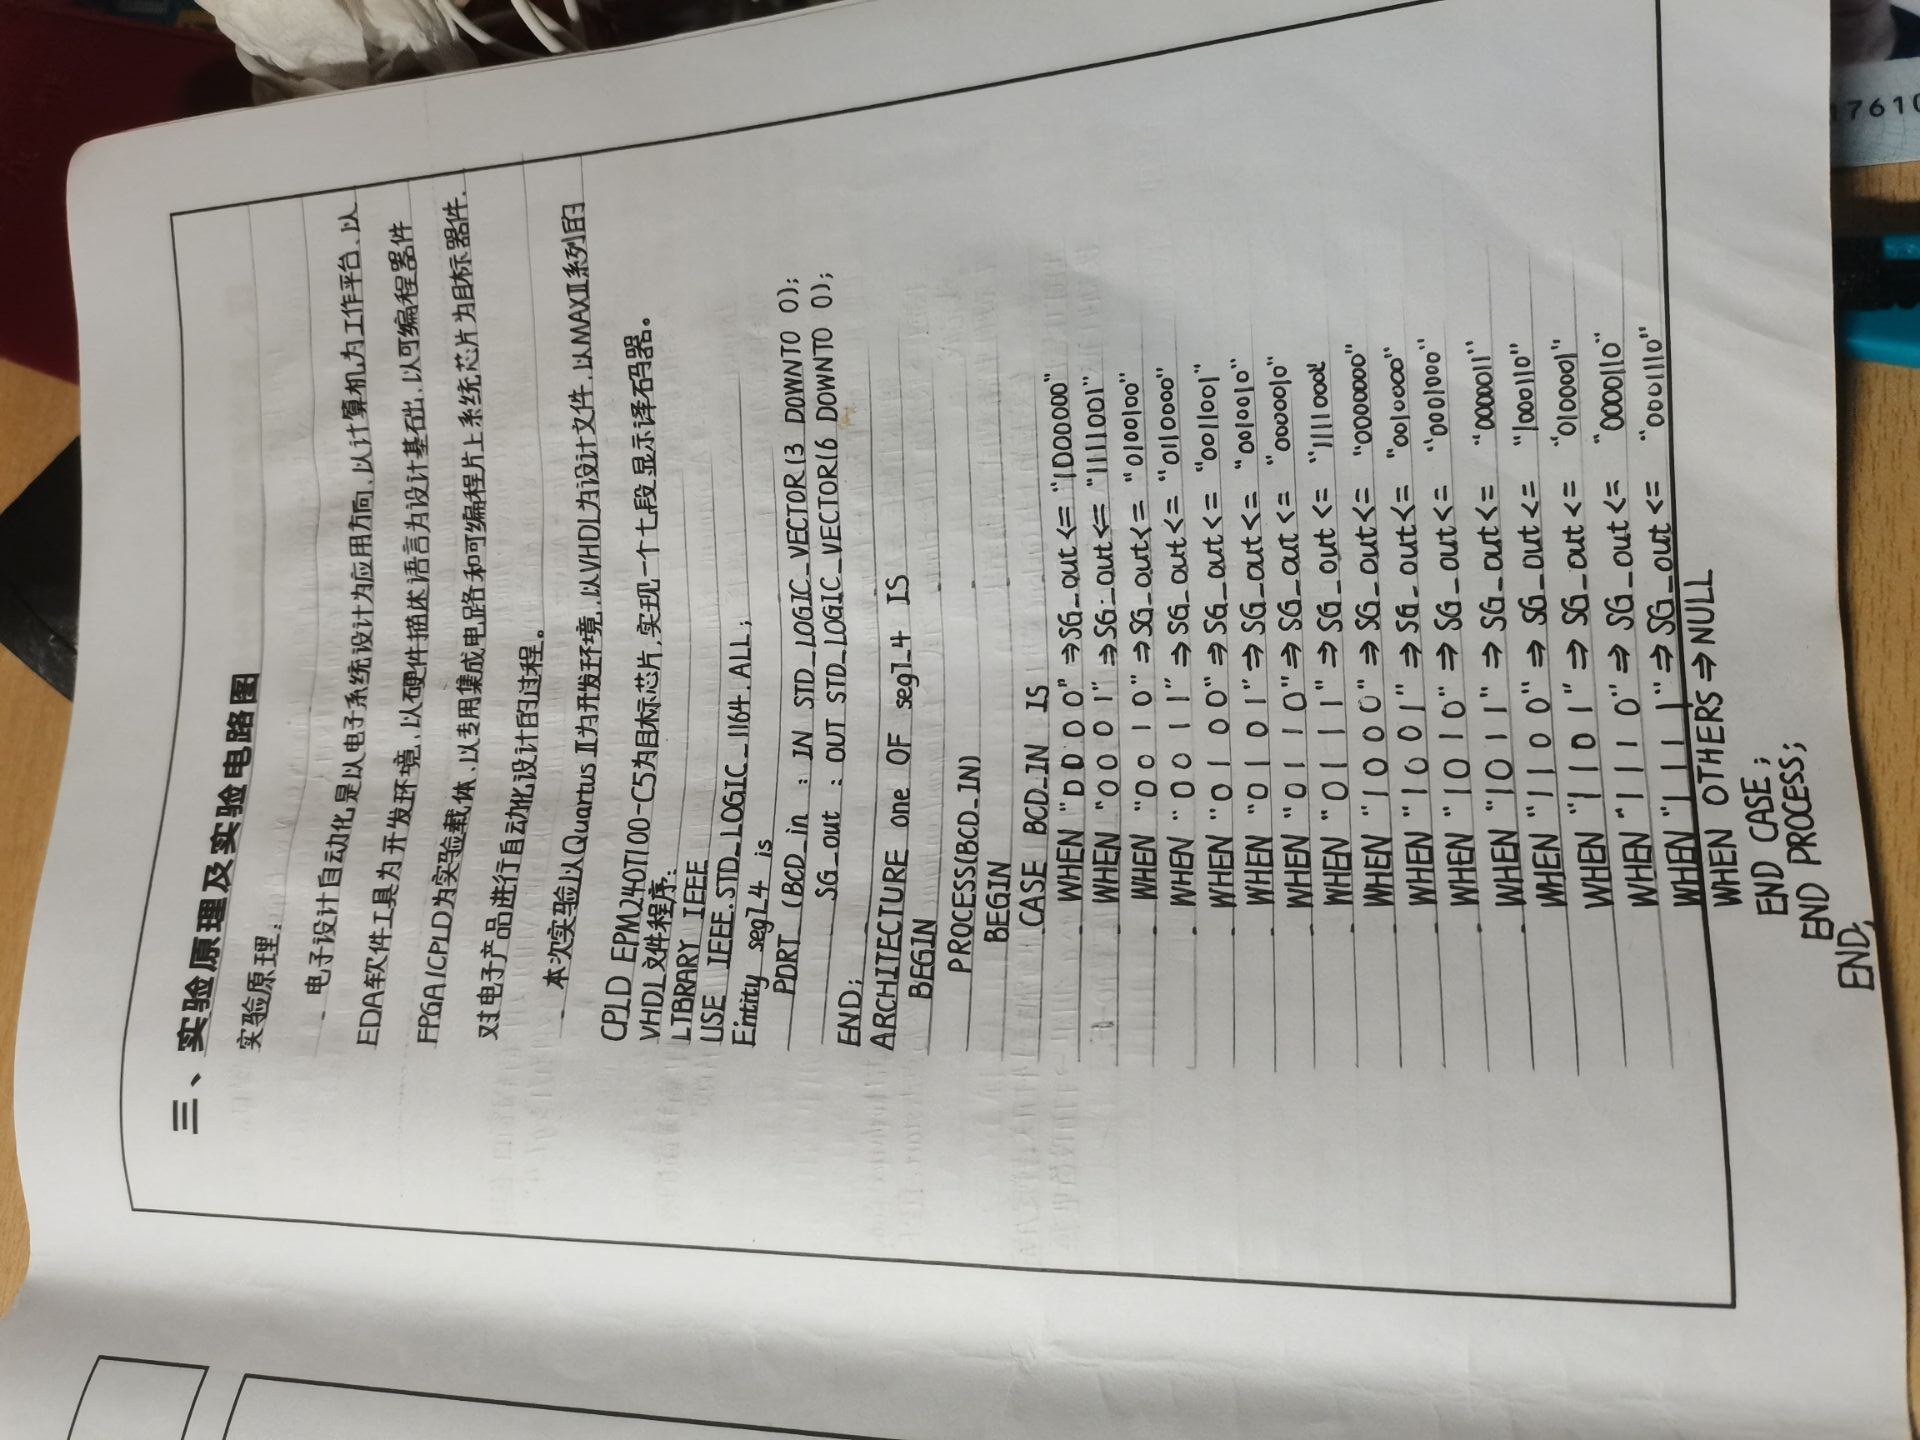 三、实验原理及实验电路图
实验原理：
电子设计自动化是以电子系统设计为应用方向，以计算机为工作平台，以
EDA软件工具为开发环境，以硬件描述语言为设计基础，以可编程器件
FPGA/CPLD为实验载体，以专用集成电路和可编程片上系统芯片为目标器件，
对电子产品进行自动化设计的过程。
本次实验以Quartus II为开发环境，以VHDL为设计文件，以MAXII系列的
CPLD EPM240T100-C5为目标芯片，实现一个七段显示译码器。
VHDL文件程序：
LIBRARY IEEE
USE IEEE.STD_LOGIC_1164.ALL;
Entity seg7_4 is
PORT (BCD_in : IN STD_LOGIC_VECTOR(3 DOWNTO 0);
SG_out : OUT STD_LOGIC_VECTOR(6 DOWNTO 0);
END;
ARCHITECTURE one OF seg7_4 IS
BEGIN
PROCESS(BCD_IN)
BEGIN
CASE BCD_IN IS
WHEN "0000" => SG_out <= "1000000"
WHEN "0001" => SG_out <= "1111001"
WHEN "0010" => SG_out <= "0100100"
WHEN "0011" => SG_out <= "0110000"
WHEN "0100" => SG_out <= "0011001"
WHEN "0101" => SG_out <= "0010010"
WHEN "0110" => SG_out <= "0000010"
WHEN "0111" => SG_out <= "1111000"
WHEN "1000" => SG_out <= "0000000"
WHEN "1001" => SG_out <= "0010000"
WHEN "1010" => SG_out <= "0001000"
WHEN "1011" => SG_out <= "0000011"
WHEN "1100" => SG_out <= "1000110"
WHEN "1101" => SG_out <= "0100001"
WHEN "1110" => SG_out <= "0000110"
WHEN "1111" => SG_out <= "0001110"
WHEN OTHERS => NULL
END CASE;
END PROCESS;
END;